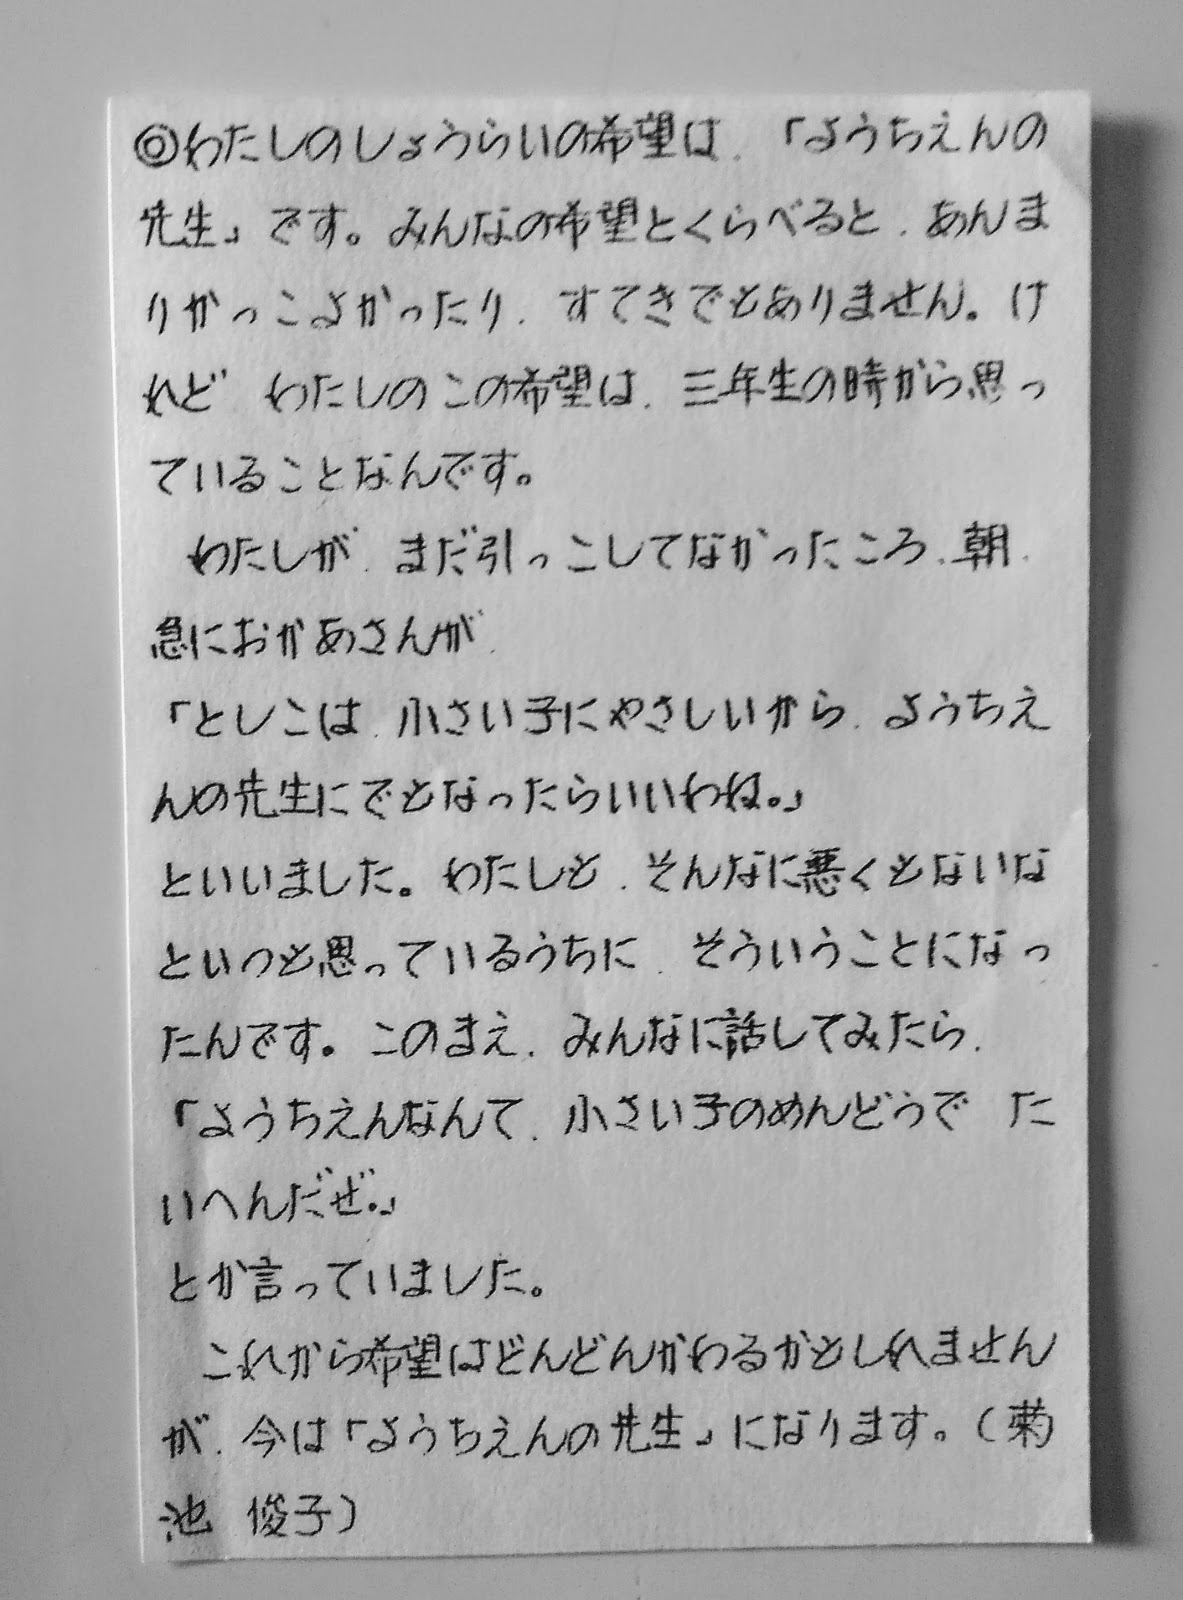 ◎わたしのしょうらいの希望は、「ようちえんの
先生」です。みんなの希望とくらべると、あんま
りかっこよかったり、すてきでもありません。け
れど、わたしのこの希望は、三年生の時から思っ
ていることなんです。
わたしが、まだ引っこしてなかったころ、朝、
急におかあさんが、
「としこは、小さい子にやさしいから、ようちえ
んの先生にでもなったらいいわね。」
といいました。わたしも、そんなに悪くもないな
といつも思っているうちに、そういうことになっ
たんです。このまえ、みんなに話してみたら、
「ようちえんなんて、小さい子のめんどうで、た
いへんだぜ。」
とか言っていました。
これから希望はどんどんかわるかもしれません
が、今は「ようちえんの先生」になります。（菊
池 俊子）